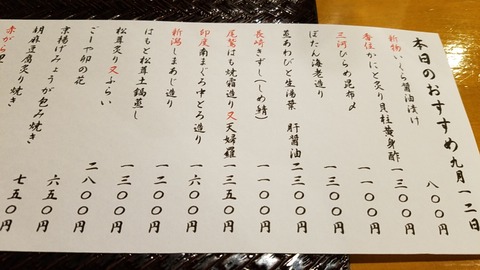 本日のおすすめ 九月一二日
新物 いくら醤油漬け 八〇〇円
香住 かにと炙り貝柱黄身酢 一三〇〇円
三河 ひらめ昆布〆 一一〇〇円
ぼたん海老造り 一三〇〇円
蒸あわびと生湯葉 肝醤油 二三〇〇円
長崎 きずし(しめ鯖) 一〇〇〇円
尾鷲 はも焼霜造り 又 天婦羅 一三五〇円
印度 南まぐろ中とろ造り 一六〇〇円
新潟 しまあじ造り 一二〇〇円
はもと松茸土鍋蒸し 一三〇〇円
松茸炙り 又 ふらい 二八〇〇円
ごじや卯の花
京揚げみょうが包み焼き 六五〇円
胡麻豆腐炙り焼き 七五〇円
赤がら